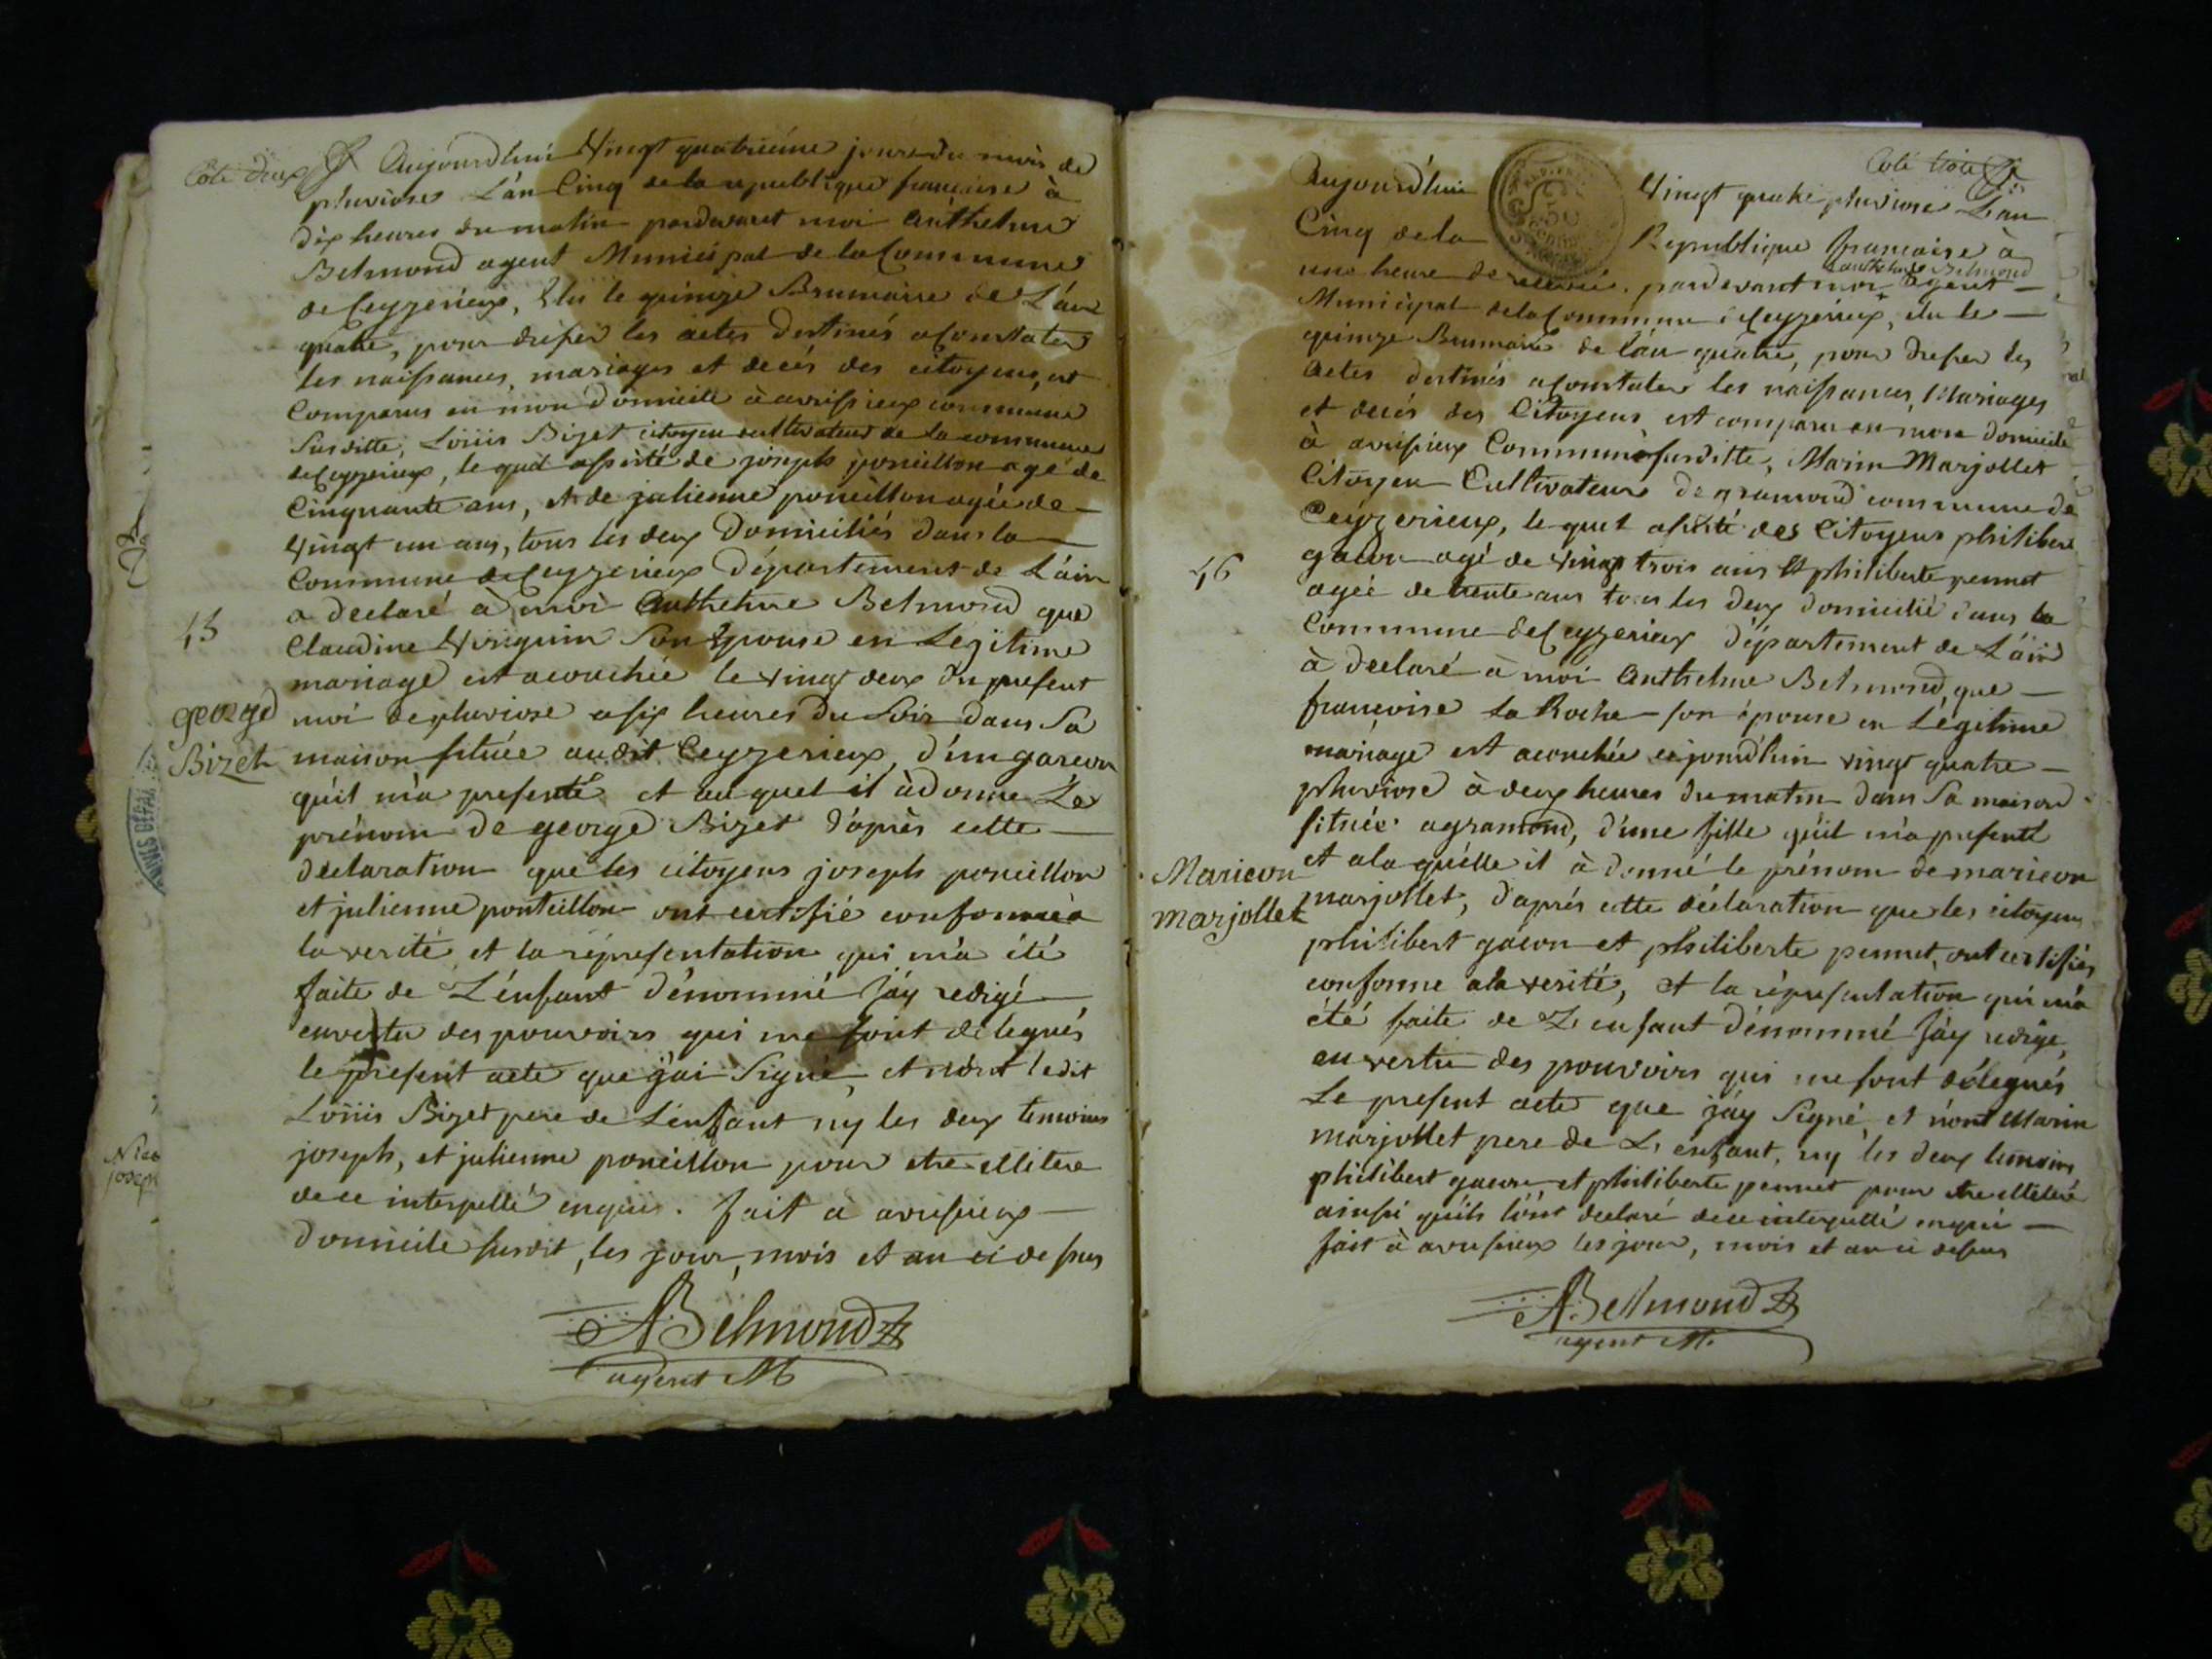 Coté deux
Aujourdhui Vingt quatrieme jour du mois de
pluviose L'an Cinq de la republique francaise à
dix heures du matin pardevant moi Anthelme
Belmond agent Municipal de la Commune
de Ceyzerieux, Elu le quinze Brumaire de L'an
quatre, pour dresser les actes destinés a Constater
les naissances, mariages et decés des citoyens, est
Comparus en mon domicile à avrissieux commune
susditte, Loüis Bizet citoyen cultivateur de la commune
de Ceyzerieux, le quel assisté de joseph poncillon agé de
Cinquante ans, et de julienne poncillon agée de
Vingt un ans, tous les deux domiciliés dans la
Commune de Ceyzerieux Département de L'ain
a declaré à moi Anthelme Belmond que
Claudine Son Epouse en Légitime
mariage est acouchée le vingt deux du present
moi de pluviose a six heures du Soir dans Sa
maison située audit Ceyzerieux, d'un garcon
qu'il m'a presenté et au quel il à donné Le
prénom de george Bizet d'après cette
declaration que les citoyens joseph poncillon
et julienne poncillon ont certifié conforme a
la verité, et la répresentation qui m'a été
faite de L'énfant dénommé J'ay redigé
en vertu des pouvoirs qui me sont délegués
le present acte que j'ai Signé, et n'ont ledit
Loüis Bizet pere de L'énfant ny les deux temoins
joseph, et julienne poncillon pour etre illitere
de ce interpellé enquis. fait à avrissieux
Domicile susdit, les jour, mois et an ci dessus
ABelmond
agent M
45
george
Bizet
joseph
Coté trois
Aujourd'hui Vingt quatre pluviose L'an
Cinq de la Republique francaise à
une heure de relevée pardevant moi anthelme Belmond agent
Municipal de la Commune de Ceyzérieux, élu le
quinze Brumaire de l'an quatre, pour dresser les
Actes destinés a constater les naissances, Mariages
et decés des Citoyens est comparu en mon domicile
à avrissieux Commune susditte, Marin Marjollet
Citoyen Cultivateur de gramond commune de
Ceyzerieux, le quel assisté des Citoyens philibert
gacon agé de vingt trois ans et philiberte pennet
agée de trente ans tous les deux domicilié dans la
Commune de Ceyzerieux Département de L'ain
à declaré à moi Anthelme Belmond, que
francoise La Roche son épouse en Légitime
mariage est acouchée cejourd'hui vingt quatre
pluviose à deux heures du matin dans Sa maison
située a gramond, d'une fille qu'il m'a presenté
et a la quélle il à donné le prénom de marieon
marjollet, d'aprés cette déclaration que les citoyens
philibert gacon et philiberte pennet, ont certifiés
conforme a la verité, et la répresentation qui m'a
été faite de L'enfant dénommé J'ay redigé,
en vertu des pouvoirs qui me sont délegués
Le present acte que j'ay Signé, et n'ont Marin
marjollet pere de L'enfant, ny les deux temoins
philibert gacon et philiberte pennet pour etre illiteré
ainssi qu'ils l'ont declaré de ce interpellé enquis
fait à avrissieux les jour, mois et an ci dessus
ABelmond
agent M.
46
Marieon
Marjollet
50